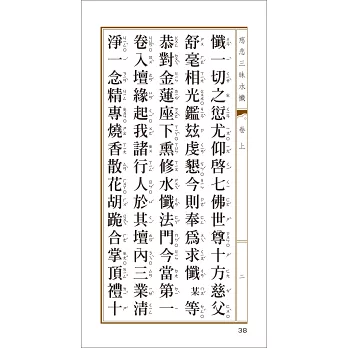 慈悲三昧水懺　卷上　二
懺一切之愆尤仰啓七佛世尊十方慈父
舒毫相光鑑茲虔懇今則奉爲求懺某等
恭對金蓮座下熏修水懺法門今當第一
卷入壇緣起我諸行人於其壇內三業清
淨一念精專燒香散花胡跪合掌頂禮十
38